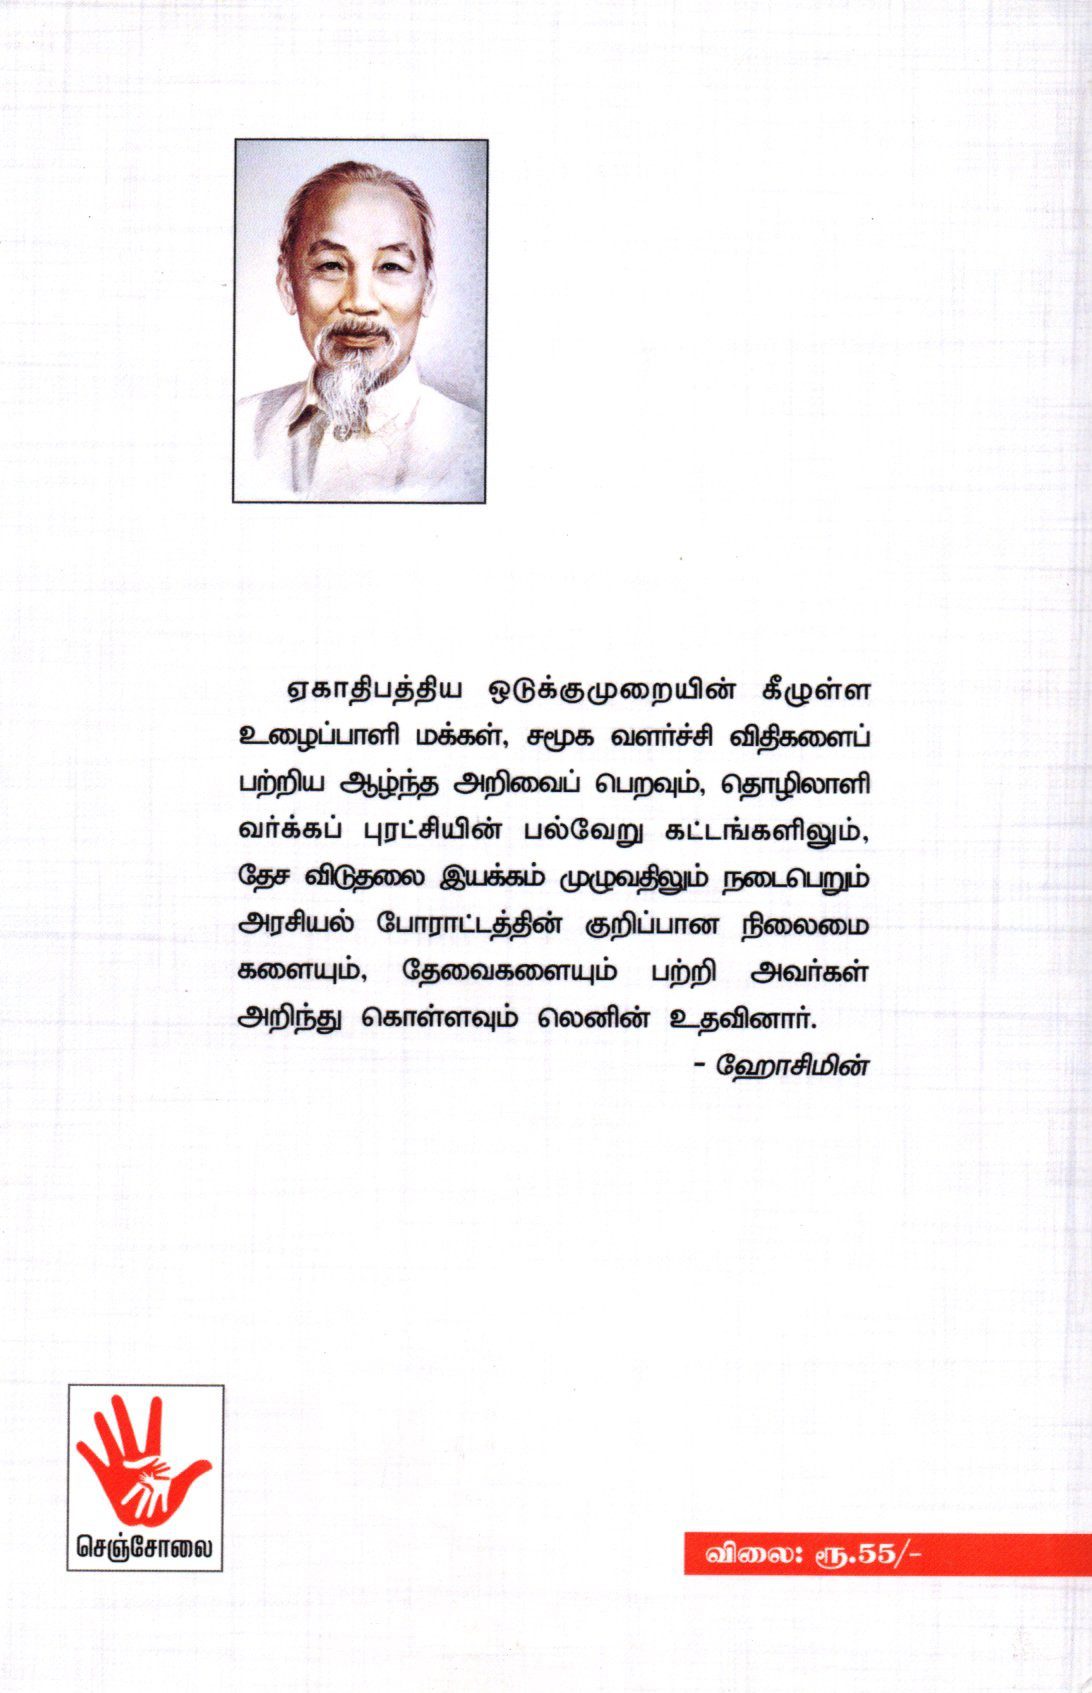 ஏகாதிபத்திய ஒடுக்குமுறையின் கீழுள்ள
உழைப்பாளி மக்கள், சமூக வளர்ச்சி விதிகளைப்
பற்றிய ஆழ்ந்த அறிவைப் பெறவும், தொழிலாளி
வர்க்கப் புரட்சியின் பல்வேறு கட்டங்களிலும்,
தேச விடுதலை இயக்கம் முழுவதிலும் நடைபெறும்
அரசியல் போராட்டத்தின் குறிப்பான நிலைமை
களையும், தேவைகளையும் பற்றி அவர்கள்
அறிந்து கொள்ளவும் லெனின் உதவினார்.
- ஹோசிமின்
செஞ்சோலை
விலை: ரூ.55/-